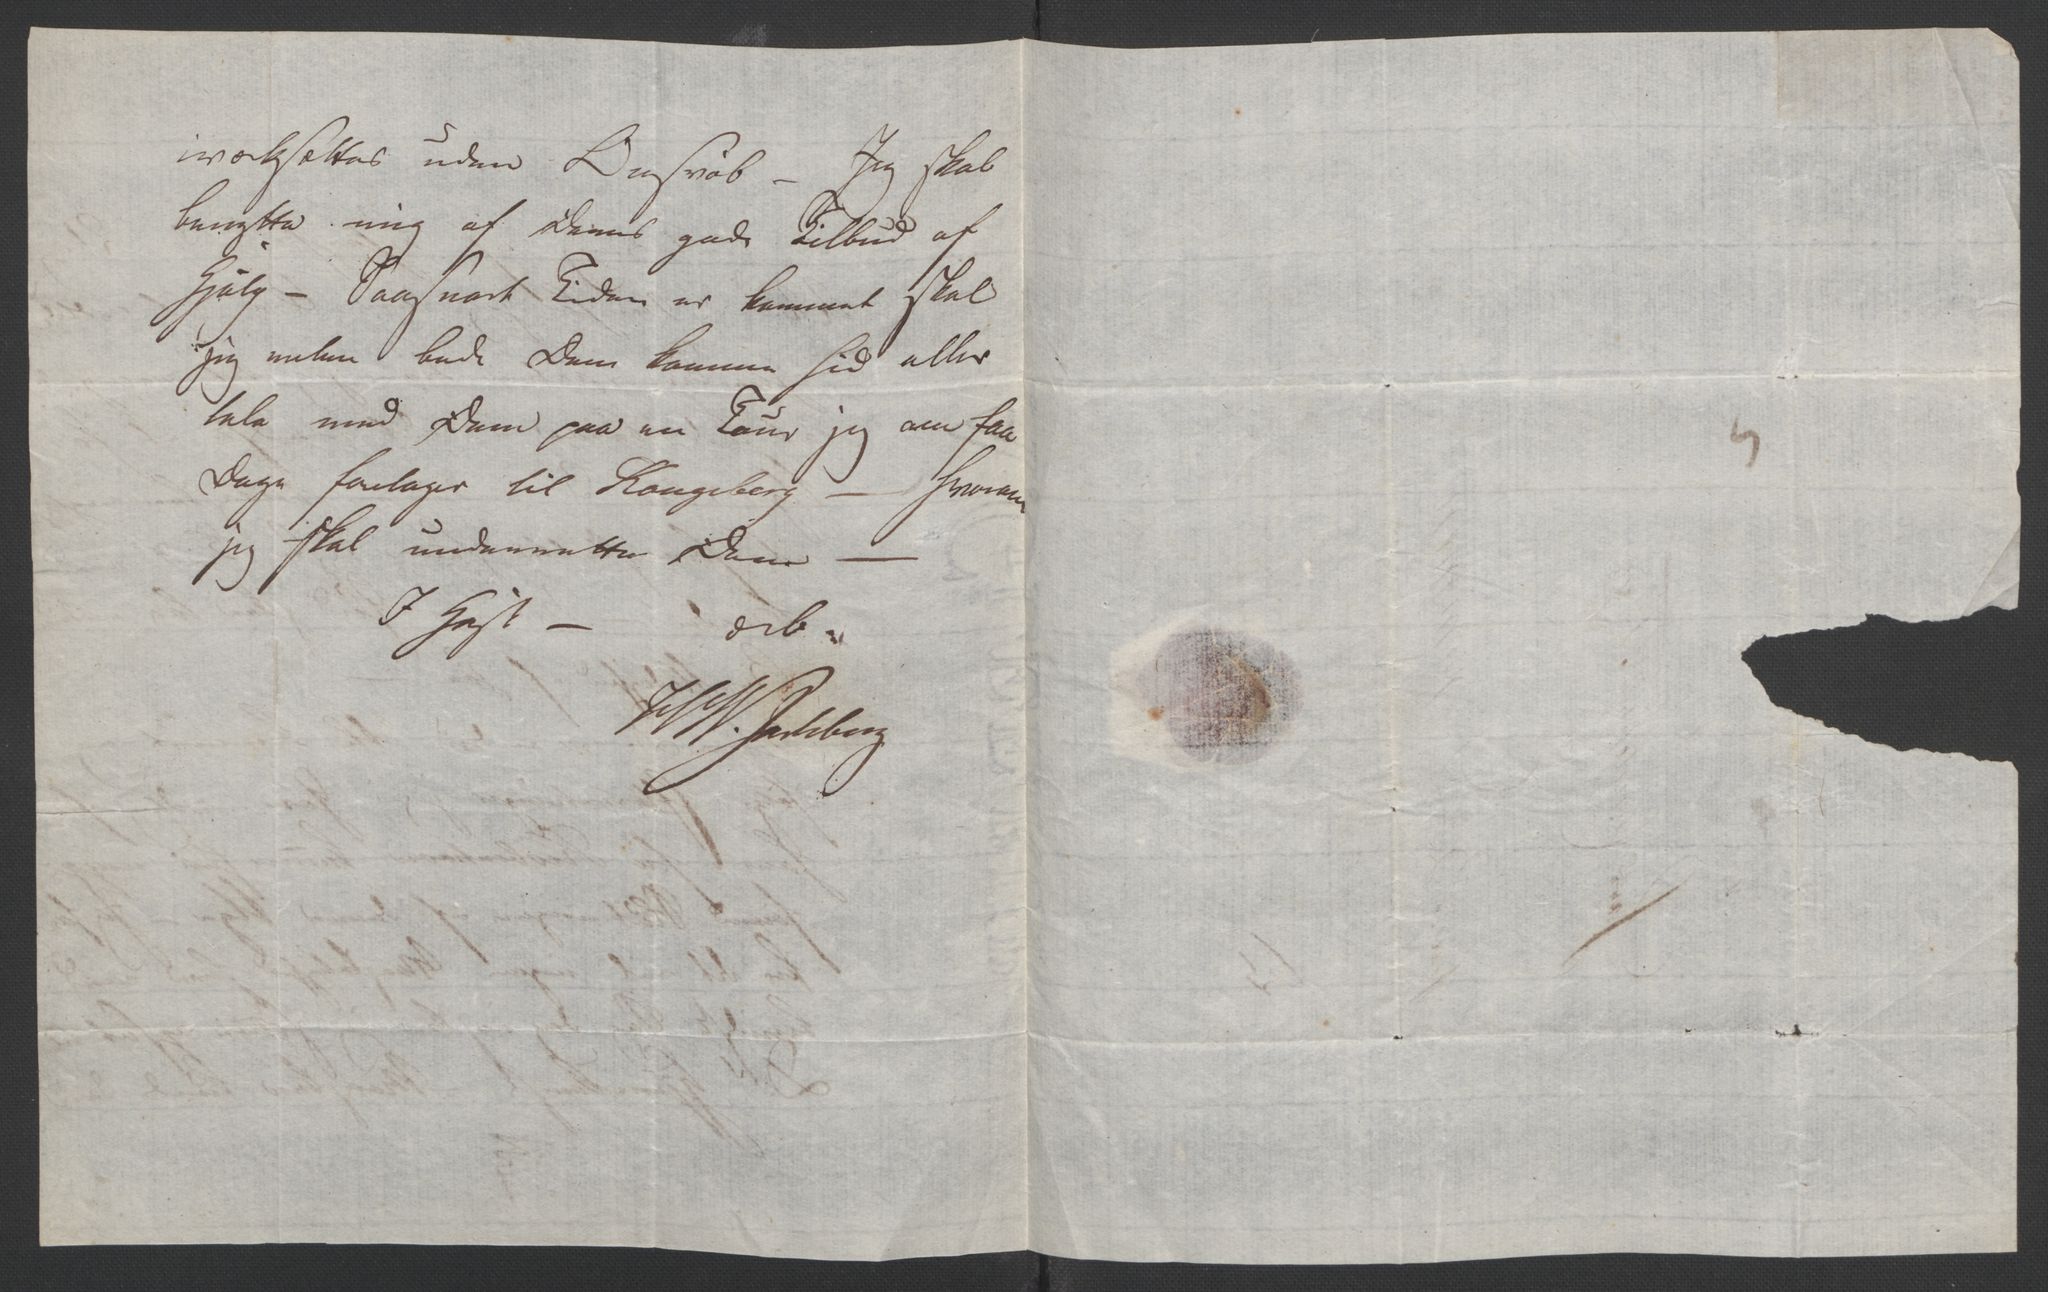 iværksættes uden Opsraab – Jeg skal
benytte mig af Deres gode Tilbud af
Hjelp – Saasnart Tiden er kommet skal
jeg enten bede Dem komme hid eller
tale med Dem paa en Tour jeg om faa
Dage foretager til Kongsberg – hvorom
jeg skal underrette Dem —
I Hast – ærb.
Jarlsberg